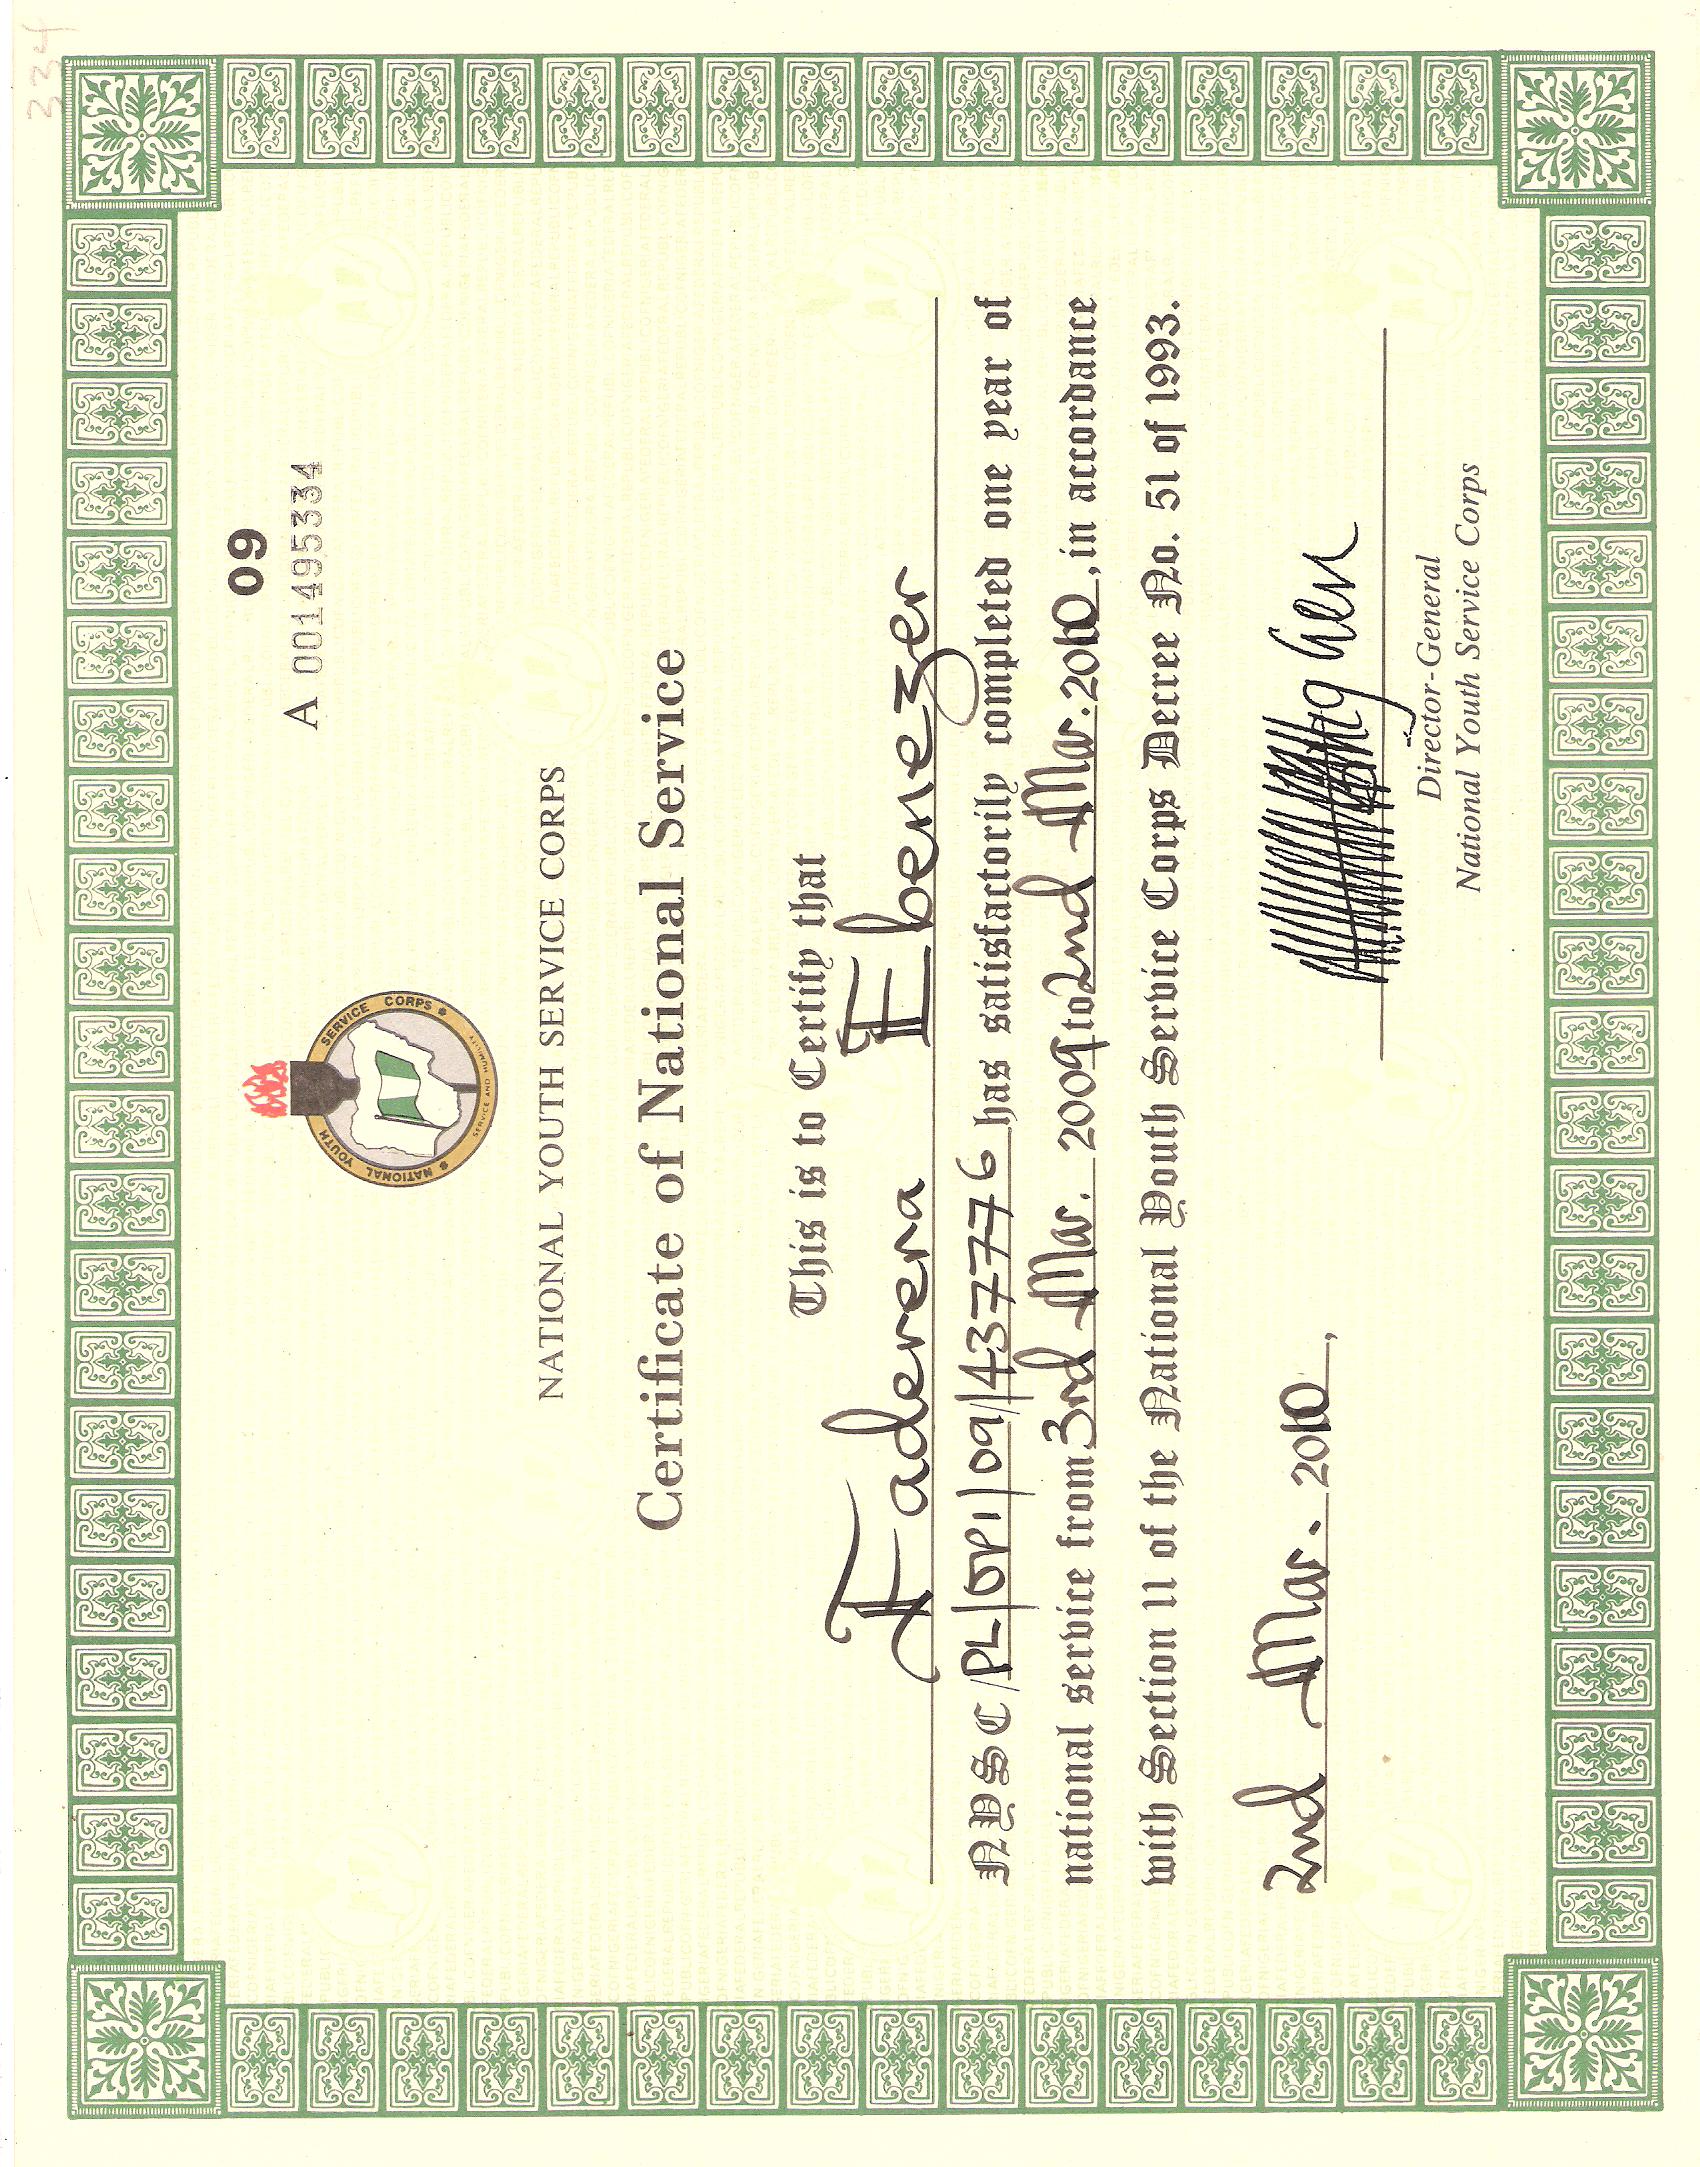 334
09
A 001495334
NATIONAL YOUTH SERVICE CORPS
SERVICE AND HUMILITY
NATIONAL YOUTH SERVICE CORPS
Certificate of National Service
This is to Certify that
Faderera Ebenezer
NYSC/PL/OP1/09/437776 has satisfactorily completed one year of
national service from 3rd Mar. 2009 to 2nd Mar. 2010, in accordance
with Section 11 of the National Youth Service Corps Decree No. 51 of 1993.
2nd Mar. 2010,
Director-General
National Youth Service Corps